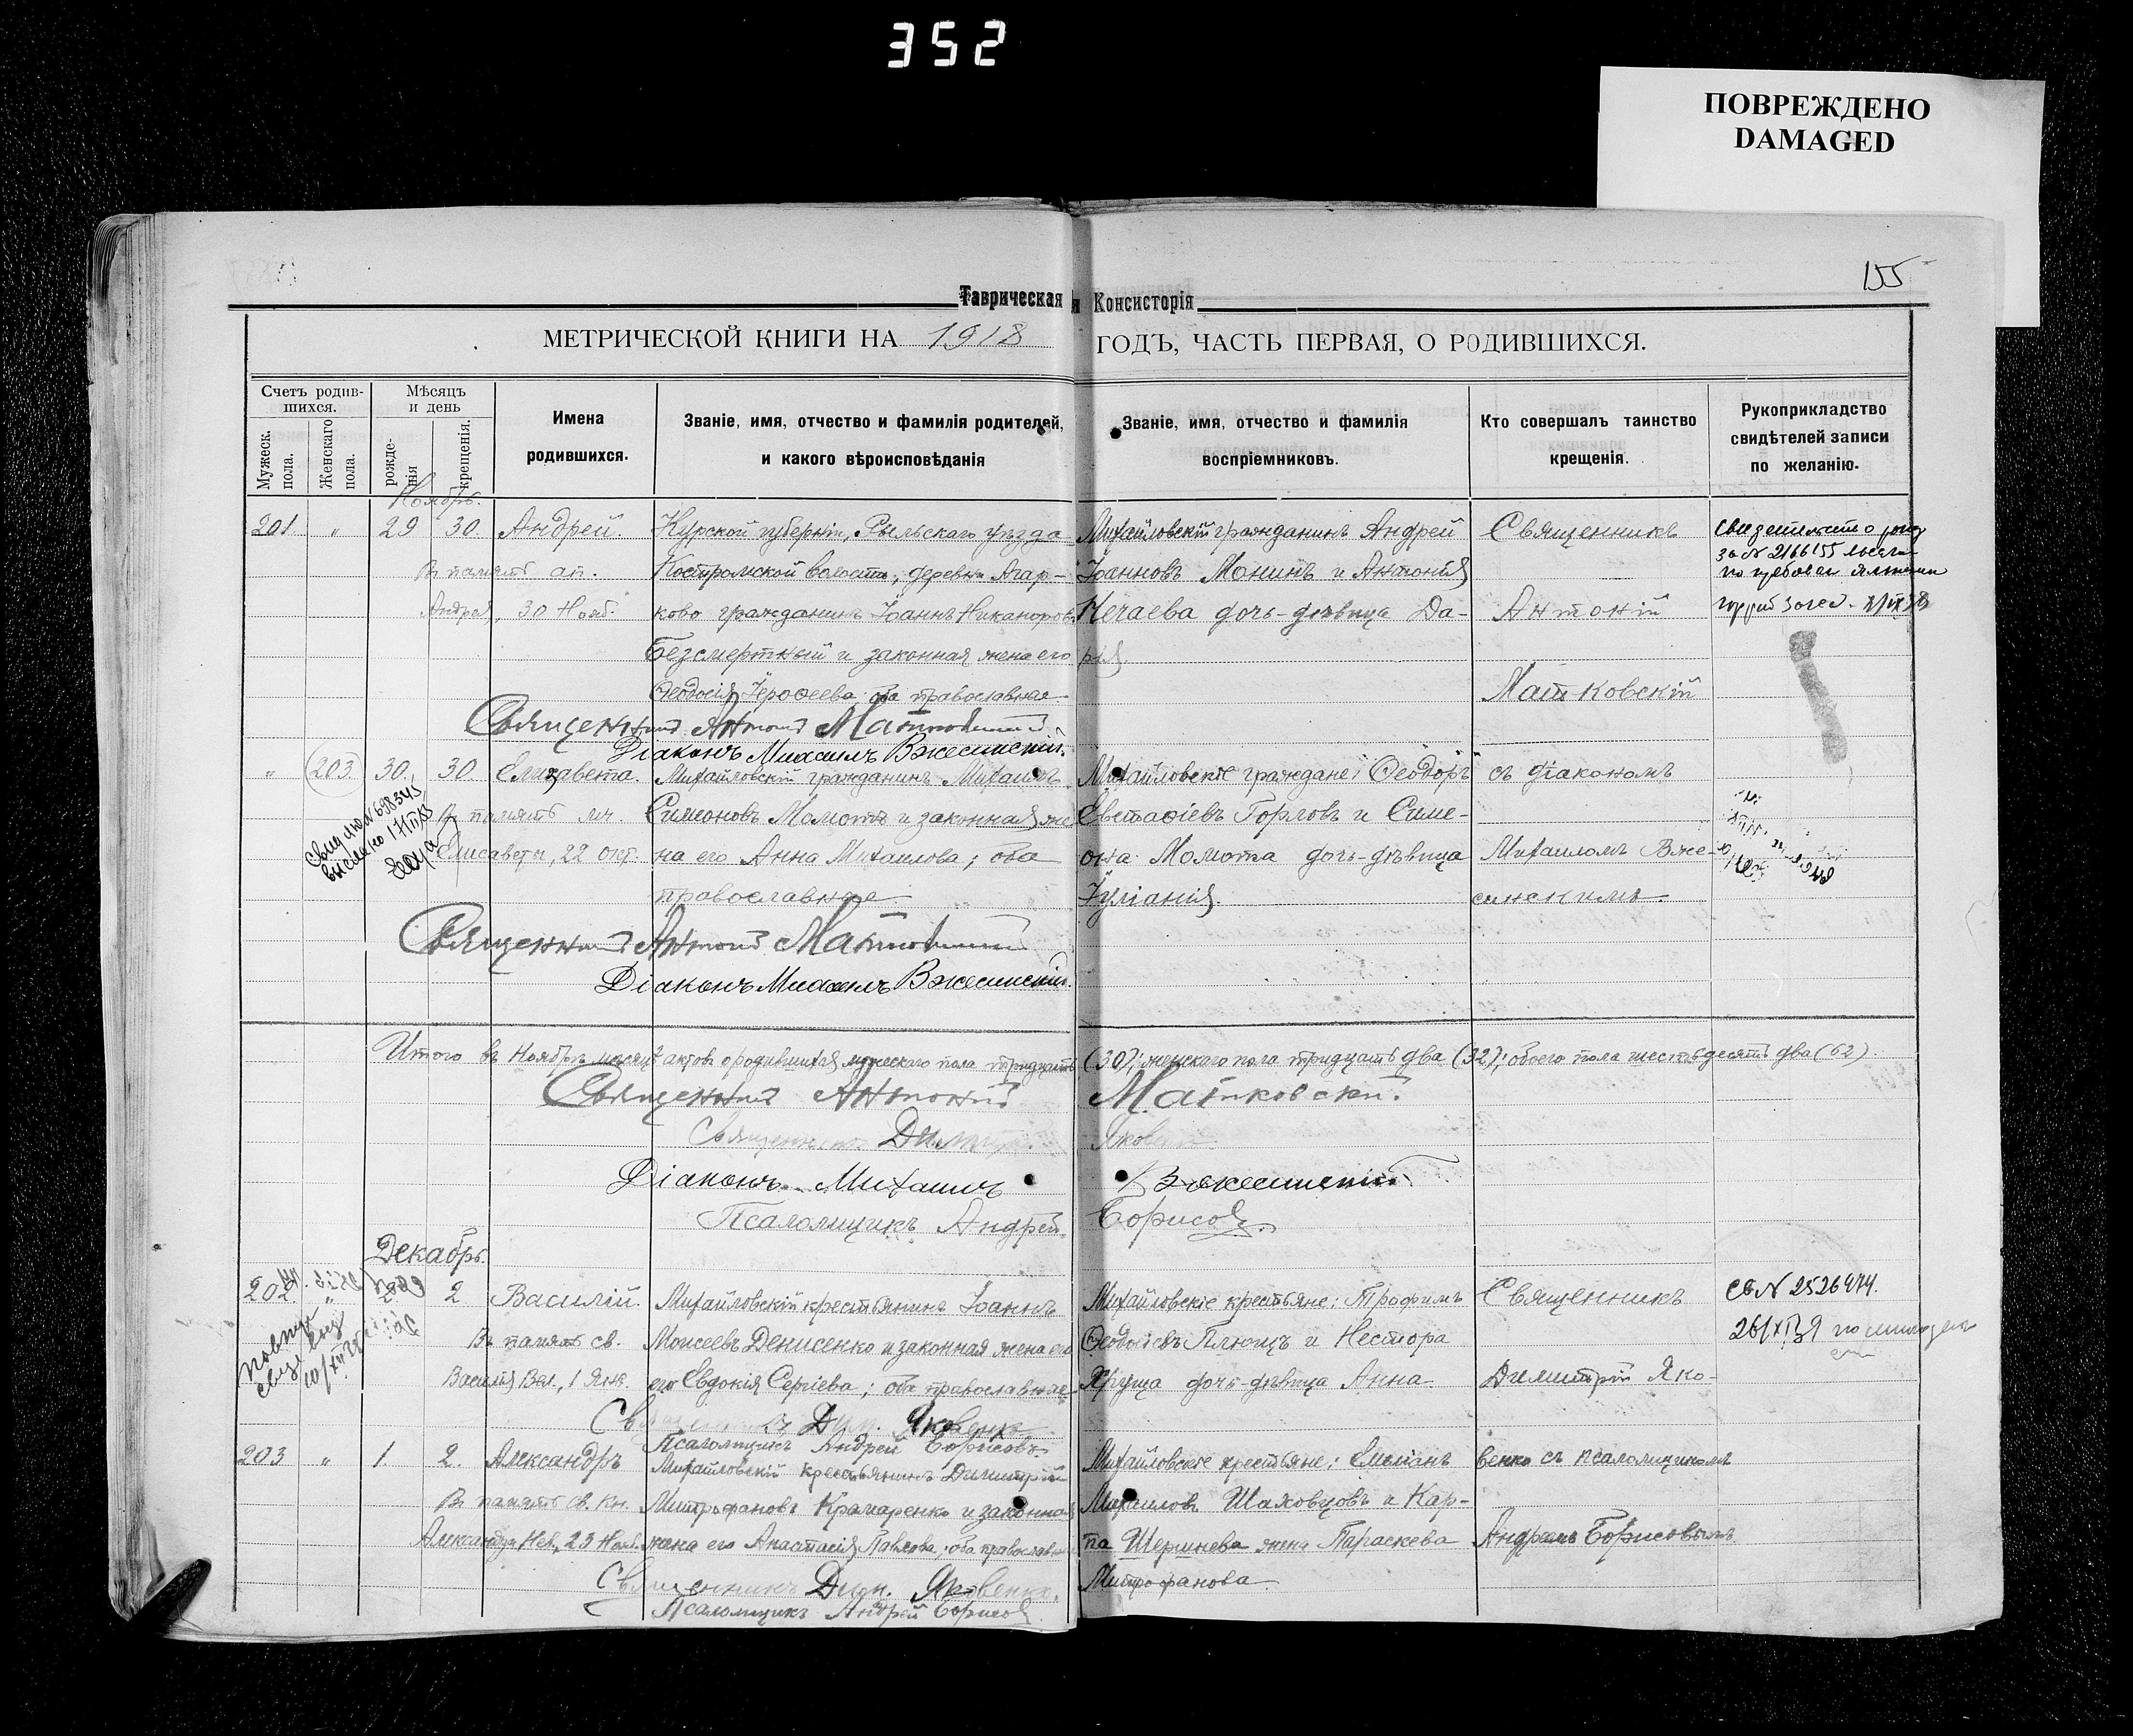 352
ПОВРЕЖДЕНО
DAMAGED
155
Таврическая Консисторія
МЕТРИЧЕСКОЙ КНИГИ НА 1918 ГОДЪ, ЧАСТЬ ПЕРВАЯ, О РОДИВШИХСЯ.
Счетъ родив-
шихся.
Мужеск.
пола.
Женскаго
пола.
Мѣсяцъ
и день
рожде-
нія
крещенія.
Имена
родившихся.
Званіе, имя, отчество и фамилія родителей,
и какого вѣроисповѣданія
Званіе, имя, отчество и фамилія
воспріемниковъ.
Кто совершалъ таинство
крещенія.
Рукоприкладство
свидѣтелей записи
по желанію.
Ноябрь.
201. " 29 30. Андрей.
Въ память ап.
Андрея, 30 Нояб.
Курской губерніи, Рыльскаго уѣзда
Костромской волости, деревни Агар-
ково гражданинъ Іоаннъ Никаноровъ
Безсмертный и законная жена его
Ѳеодосія Іероѳеева: оба православные
Михайловскій гражданинъ Андрей
Іоанновъ Монинъ и Антонія
Нечаева дочь-дѣвица Да-
рія
Священникъ
Антоній
Матковскій
за № 2166155
Священникъ Антоній Матковскій
Діаконъ Михаилъ Вжесинскій.
" 203. 30. 30. Елизавета.
Въ память мч.
Елисаветы, 22 окт.
№ 698345
Михайловскій гражданинъ Михаилъ
Симоновъ Мамота и законная же
на его Анна Михаилова; оба
православные
Михайловскіе граждане: Ѳеодоръ
Евстаѳіевъ Горловъ и Симе-
она Момота дочь-дѣвица
Іуліанія.
съ діакономъ
Михаиломъ Вже-
синскимъ.
Священникъ Антоній Матковскій
Діаконъ Михаилъ Вжесинскій.
Итого въ Ноябрѣ мѣсяцѣ актовъ о родившихся мужескаго пола тридцать (30); женскаго пола тридцать два (32); обоего пола шестьдесятъ два (62).
Священникъ Антоній Матковскій.
Священникъ Димитрій Яковенко
Діаконъ Михаилъ Вжесинскій
Псаломщикъ Андрей Борисовъ.
Декабрь.
202. " 2 Василій.
Въ память св.
Василія Вел., 1 Янв.
Михайловскій крестьянинъ Іоаннъ
Моисеевъ Денисенко и законная жена его
его Евдокія Сергіева; оба православные
Михайловскіе крестьяне: Трофимъ
Ѳеодосіевъ Плющъ и Нестора
Хруща дочь-дѣвица Анна
Священникъ
Димитрій Яко-
Св № 2526474.
Священникъ Дим. Яковенко
Псаломщикъ Андрей Борисовъ
203 " 1. 2. Александръ
Въ память св. кн.
Александра Нев., 23 Нояб.
Михайловскій крестьянинъ Димитрій
Митрофановъ Крамаренко и законная
жена его Анастасія Павлова; оба православные
Михайловскіе крестьяне: Емиліанъ
Михаиловъ Шаховцовъ и Кар-
па Шершнева жена Параскева
Митрофанова
венко съ псаломщикомъ
Андреемъ Борисовымъ
Священникъ Дим. Яковенко.
Псаломщикъ Андрей Борисовъ